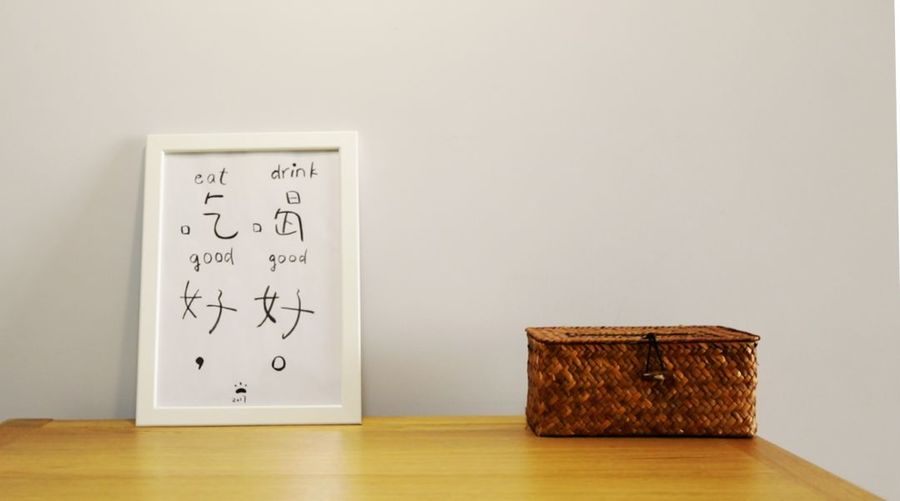 eat drink
吃 喝
good good
好 好
， 。
2017